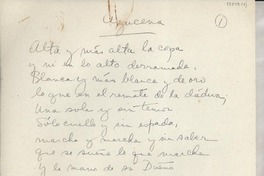 Azucena
1
Alta y más alta la copa
y ni en lo alto derramada,
Blanca y más blanca y de oro
lo que en el remate de la dádiva;
Una sola y sin
Sólo cuello y sin espada,
marcha y marcha y sin saber
que se sueña lo que marcha
y la mano de su Dueño